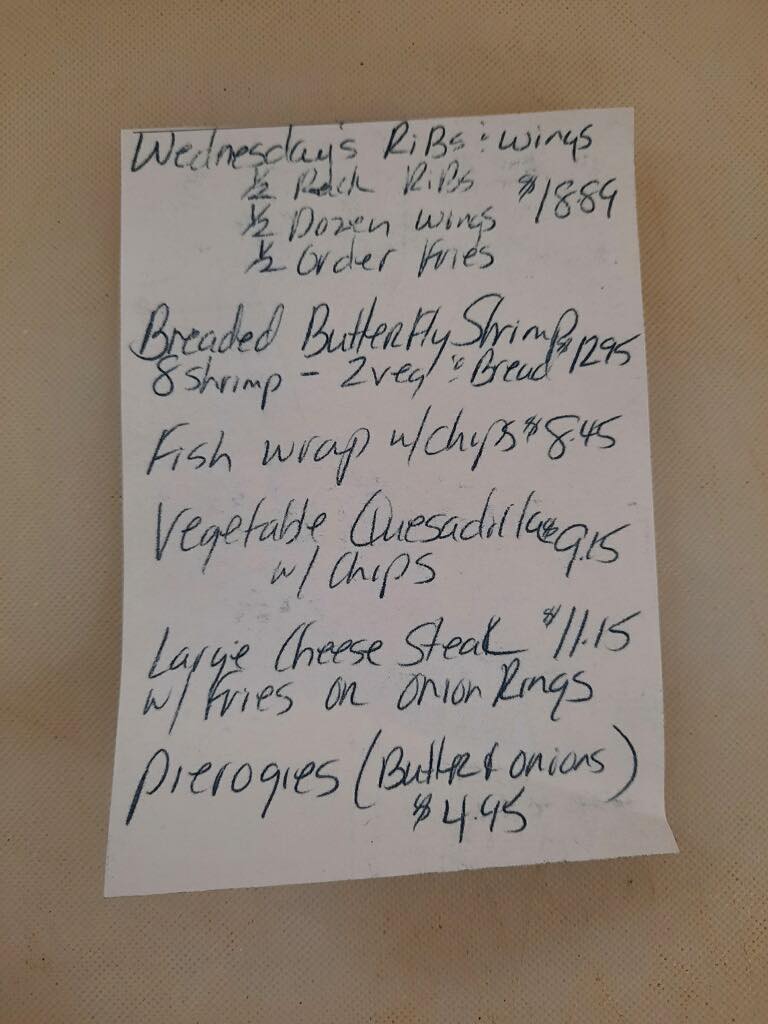 Wednesday's Ribs & wings
1/2 Rack Ribs $18.89
1/2 Dozen wings
1/2 Order Fries
Breaded Butterfly Shrimp $12.95
8 shrimp - 2 veg & Bread
Fish wrap w/chips $8.45
Vegetable Quesadilla $9.15
w/ chips
Large Cheese Steak $11.15
w/ Fries or onion Rings
Pierogies (Butter & onions)
$4.95